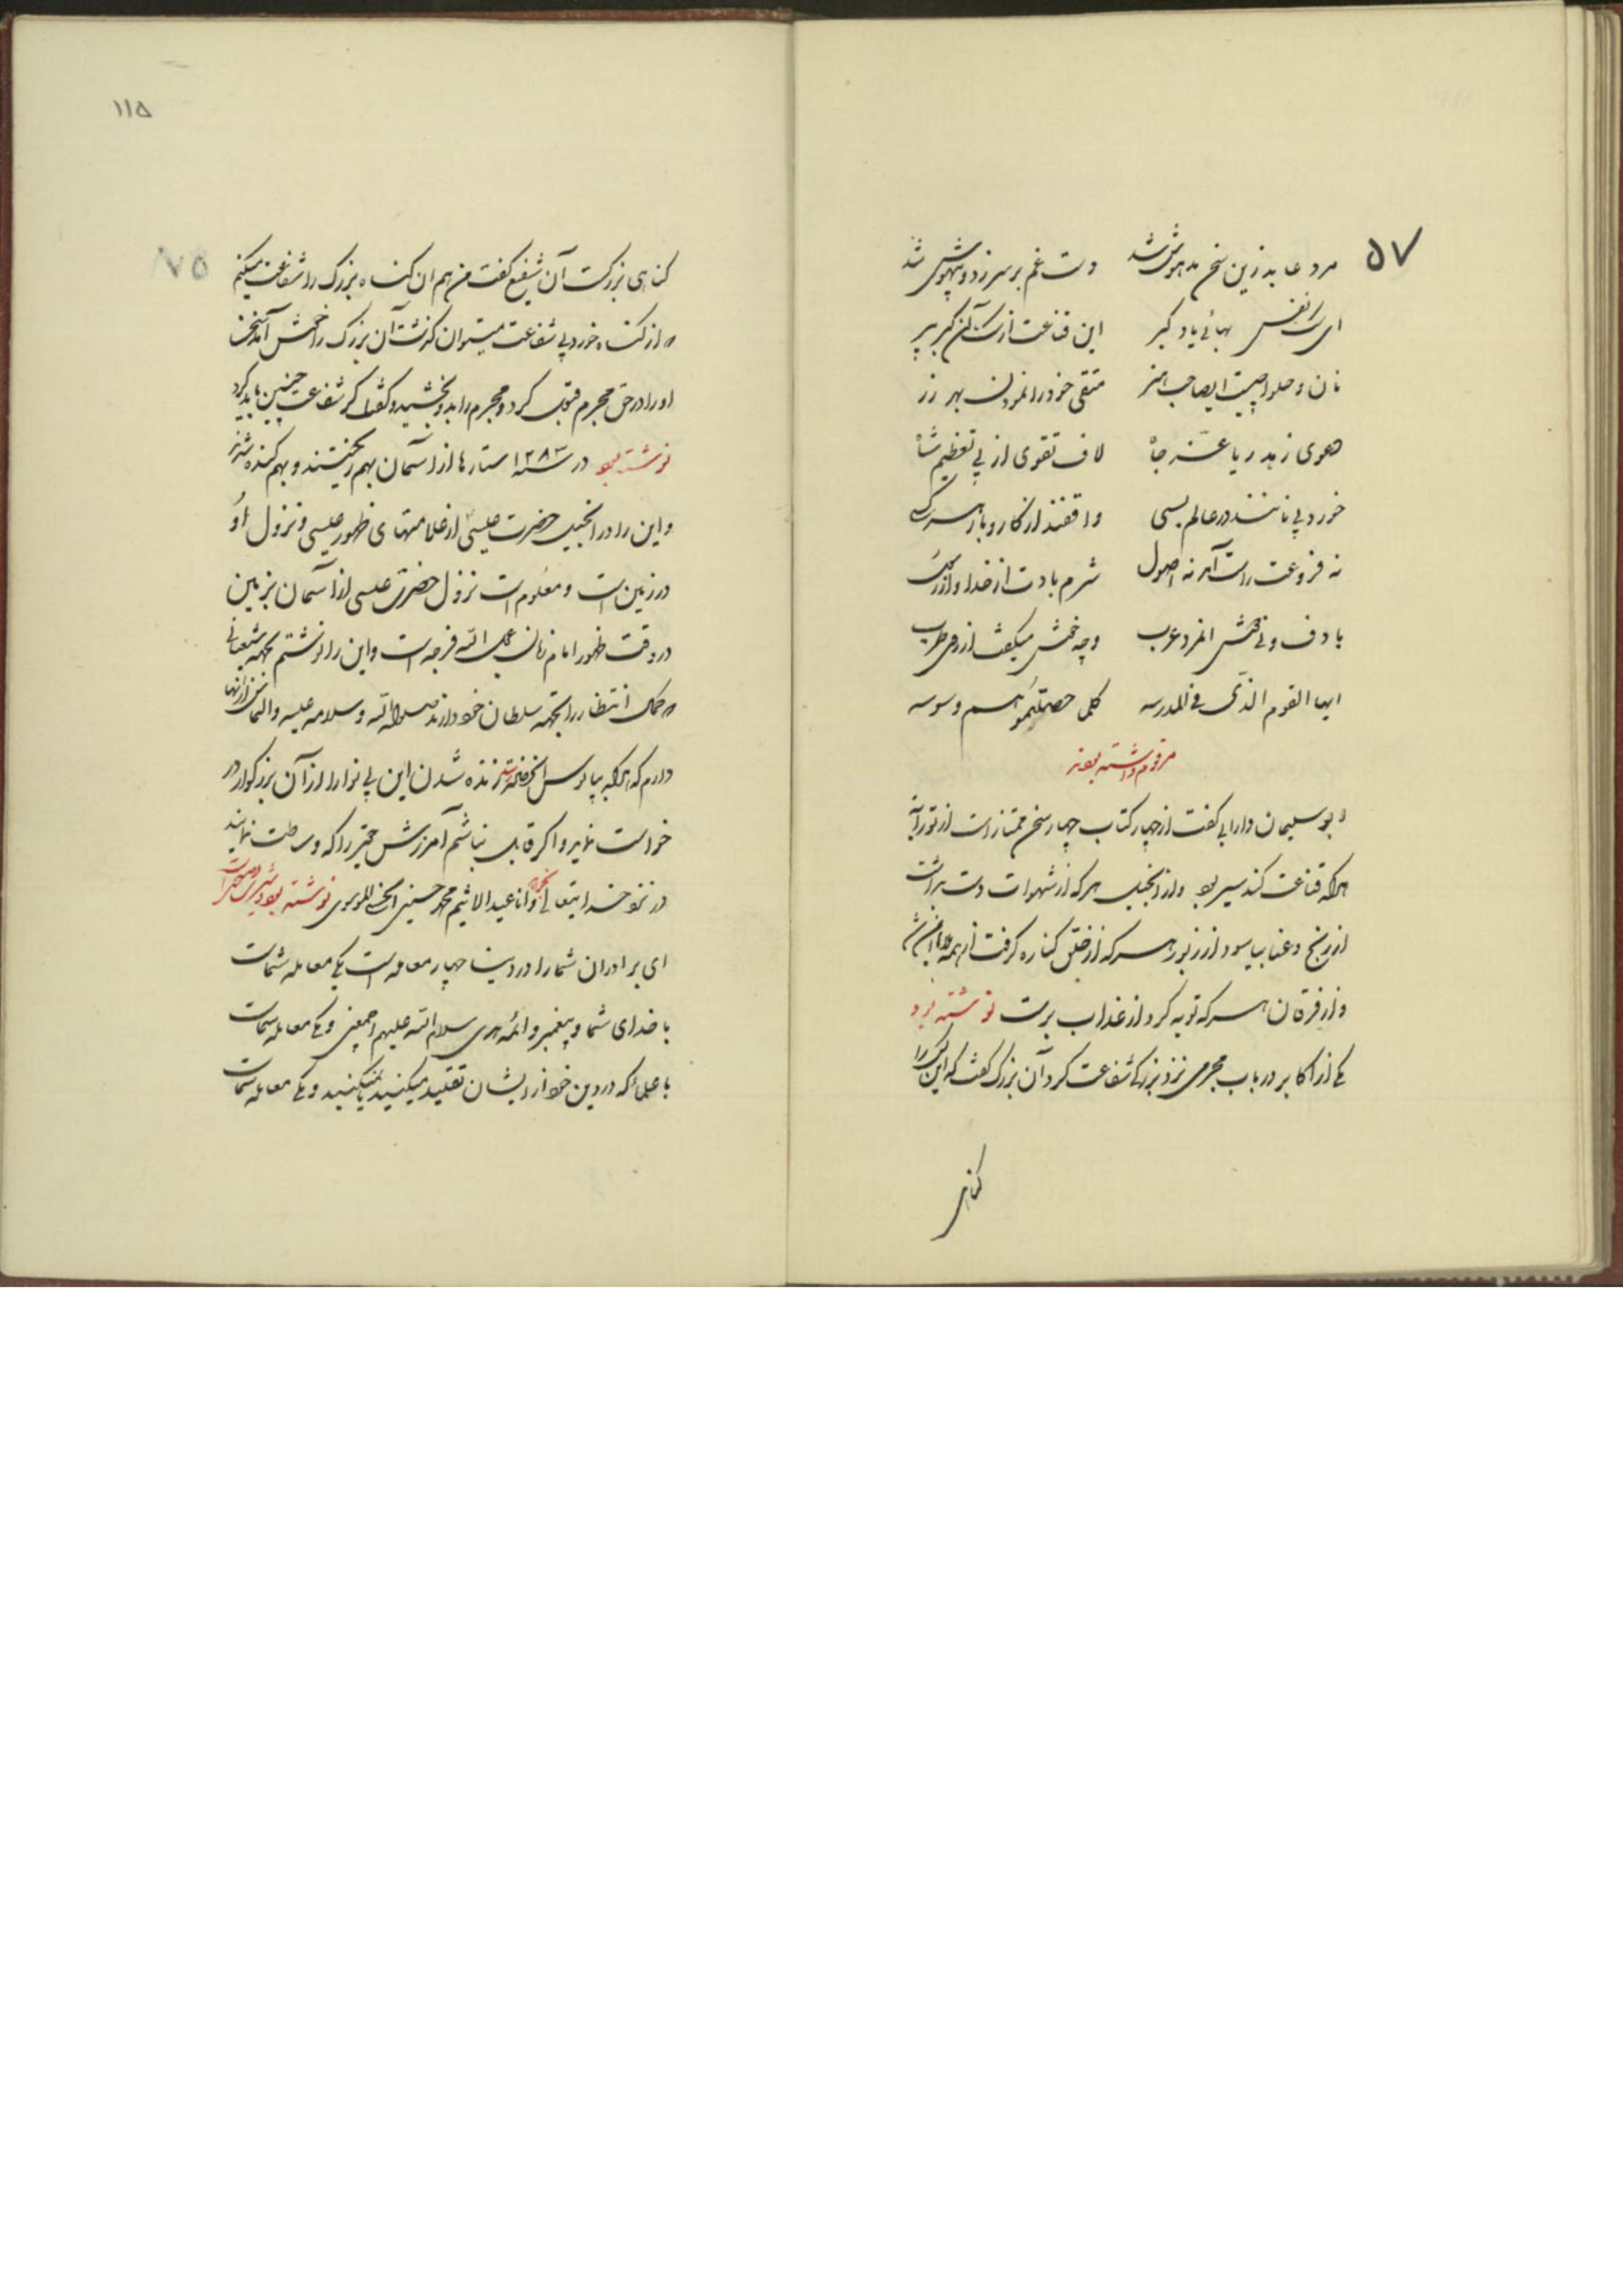 ۵۷
مرد عابد زین سخن مدهوش شد دست غم بر سر زد و بیهوش شد
ای سگ نفس بهائی یاد گیر این قناعت از سگ آن گبر پیر
نان و حلوا چیست ایصاحب متقی خود را نمودن بهر زر
دعوی زهد ریا عز جاه لاف تقوی از پی تعظیم شاه
خورد بی نانند در عالم بسی واقفند از کار و بار هر کسی
نه فروعت راست آمد نه اصول شرم بادت از خدا و از رسول
با دف و نی دوش آنمرد عرب وچه خوش میگفت از روی طرب
ایها القوم الذی فی المدرسه کلما حصلتموه وسوسه
مرقوم داشته بودند
بو سلیمان دارایی گفت از چهار کتاب چهار سخن ممتاز است از توراة
هرکه قناعت کند سیر بود و از انجیل هر که از شهوات دست برداشت
از رنج و عنا بیاسود از زبور هر که از خلق کناره گرفت از همه
و از فرقان هر که توبه کرد از عذاب برست نوشته بود
یکی از اکابر در باب مجرمی نزد بزرگی شفاعت کرد آن بزرگ گفت که این را
گناهی
۱۱۵
۷۵
گناهی بزرگست آن شفیع گفت من هم ان گناه بزرگ را شفاعت میکنم
از گناه خورد بی شفاعت میتوان گذشت آن بزرگ را خوش آمد سخن
او را در حق مجرم قبول کرد و مجرم را بدو بخشید و گفت که شفاعت چنین باید کرد
نوشته بود در سنه ۱۲۸۳ ستارها از آسمان بهم ریختند و بهم کنده شدند
و این را در انجیل حضرت عیسی از علامتهای ظهور عیسی و نزول او
در زمین است و معلوم است نزول حضرت عیسی از آسمان بزمین
در وقت ظهور امام زمان عجل الله فرجه است و این را نوشتم بجهه شیعیانی
که کمال انتظار را بجهه سلطان خود دارند صلوات الله و سلامه علیه و التماس از آنها
دارم که هرگاه بپابوس آنحضرت زنده شدن این بی نوا را از آن بزرگوار در
خواست نمایند و اگر قابل نباشم آمرزش حقیر را که وساطت نمایند
در نزد خداوند تعالی وانا عبد الاثیم محمد حسینی الموسوی نوشته بود
ای برادران شما را در دنیا چهار معامله است یکی معامله شماست
با خدای شما و پیغمبر و ائمه هدی سلام الله علیهم اجمعین و یکی معامله شماست
با علمائکه در دین خود از ایشان تقلید میکنید و یکی معامله شماست